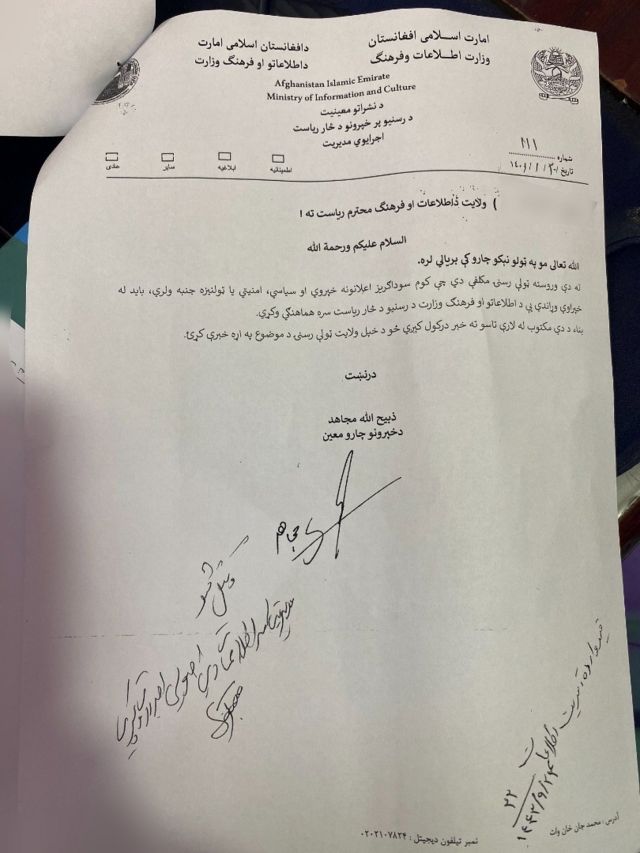 امارت اسلامی افغانستان
وزارت اطلاعات وفرهنگ
دافغانستان اسلامی امارت
داطلاعاتو او فرهنگ وزارت
Afghanistan Islamic Emirate
Ministry of Information and Culture
د نشراتو معینیت
د رسنیو پر خپرونو د څار ریاست
اجرایوي مدیریت
شماره ۱۱۱
تاریخ
اطمینانیه
ابلاغیه
سایر
عادی
) ولایت داطلاعات او فرهنگ محترم ریاست ته !
السلام علیکم ورحمة الله
الله تعالی مو په ټولو نیکو چارو کې بریالي لره.
له دې وروسته ټولې رسنۍ مکلفې دي چې کوم سوداګریز اعلانونه خپروي او سیاسي، امنیتي یا ټولنیزه جنبه ولري، باید له
خپراوي وړاندې یې د اطلاعاتو او فرهنگ وزارت د رسنیو د څار ریاست سره هماهنګي وکړي.
بناء د دې مکتوب له لارې تاسو ته خبر درکول کیږي څو د خپل ولایت ټولې رسنۍ د موضوع په اړه خبرې کړئ.
درنښت
ذبیح الله مجاهد
دخپرونو چارو معین
۲۲
۱۴۴۳/۹/۲۴
آدرس : محمد جان خان وات
نمبر تیلفون دیجیتل : ۰۲۰۲۱۰۷۸۲۴